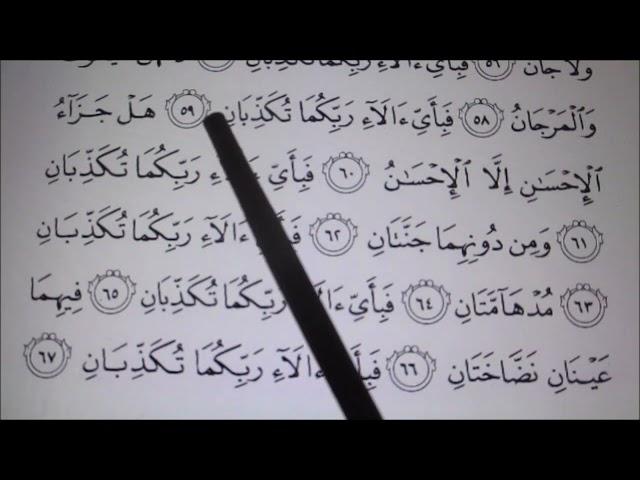 وَلَا جَانٌّ ٥٦ فَبِأَيِّ ءَالَآءِ رَبِّكُمَا تُكَذِّبَانِ
وَٱلْمَرْجَانُ ٥٨ فَبِأَيِّ ءَالَآءِ رَبِّكُمَا تُكَذِّبَانِ ٥٩ هَلْ جَزَآءُ
ٱلْإِحْسَٰنِ إِلَّا ٱلْإِحْسَٰنُ ٦٠ فَبِأَيِّ ءَالَآءِ رَبِّكُمَا تُكَذِّبَانِ
٦١ وَمِن دُونِهِمَا جَنَّتَانِ ٦٢ فَبِأَيِّ ءَالَآءِ رَبِّكُمَا تُكَذِّبَانِ
٦٣ مُدْهَآمَّتَانِ ٦٤ فَبِأَيِّ ءَالَآءِ رَبِّكُمَا تُكَذِّبَانِ ٦٥ فِيهِمَا
عَيْنَانِ نَضَّاخَتَانِ ٦٦ فَبِأَيِّ ءَالَآءِ رَبِّكُمَا تُكَذِّبَانِ ٦٧